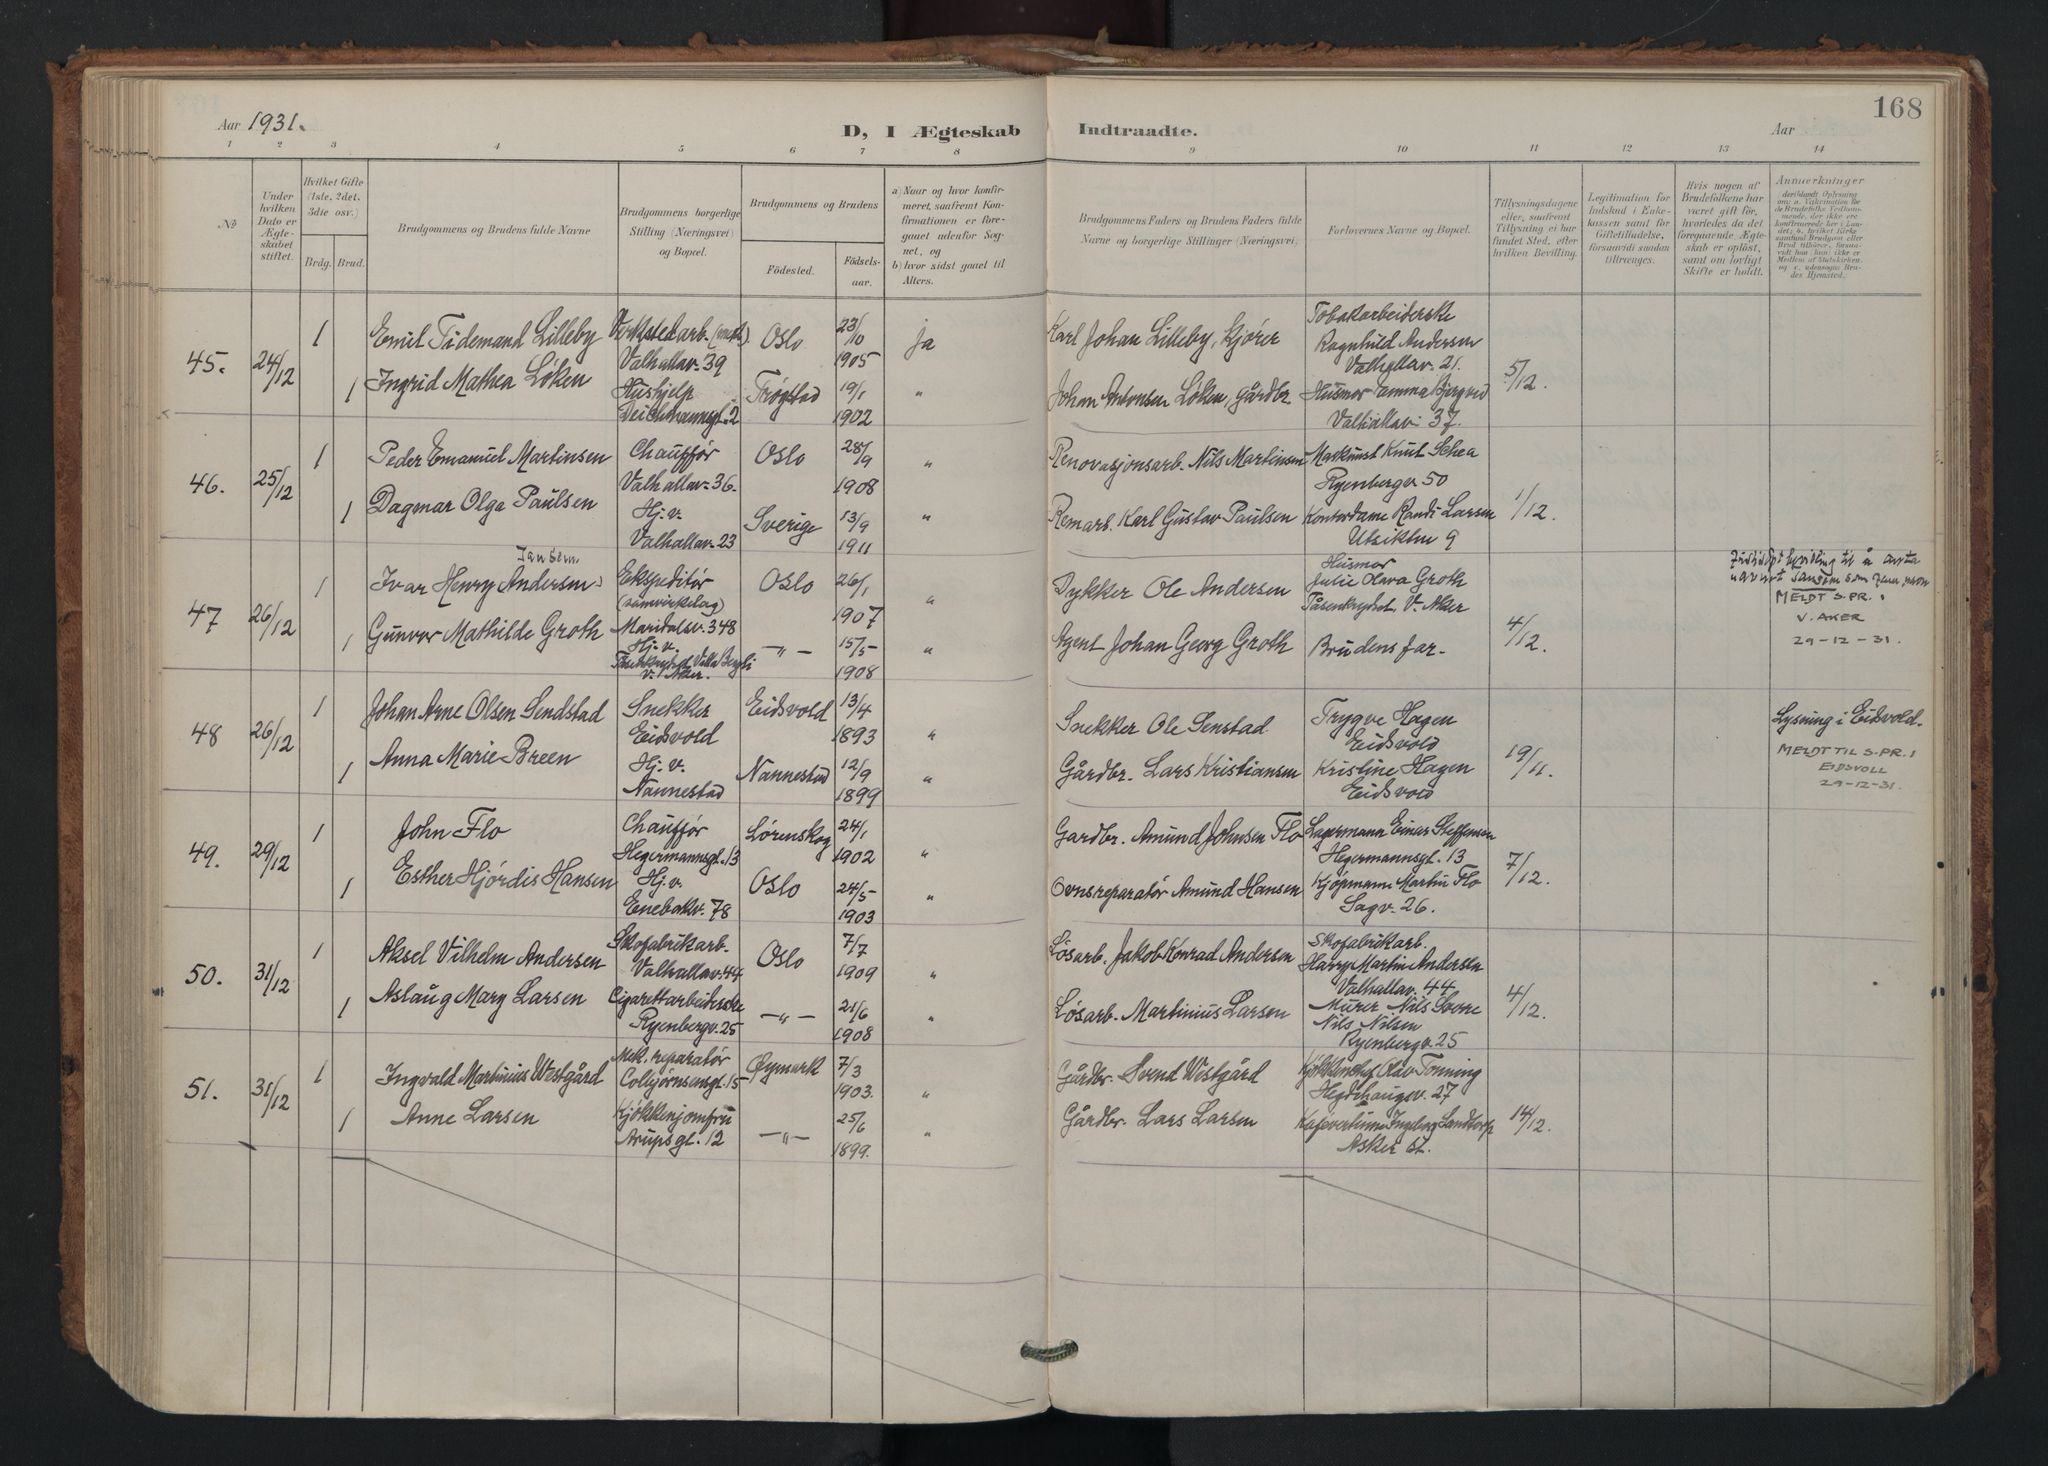 Aar 1931.
D, I Ægteskab Indtraadte.
Aar
168
1 2 3 4 5 6 7 8 9 10 11 12 13 14
No
Under hvilken Dato er Ægteskabet stiftet.
Hvilket Gifte (1ste, 2det, 3die osv.)
Brdg. Brud.
Brudgommens og Brudens fulde Navne
Brudgommens borgerlige Stilling (Næringsvei) og Bopæl.
Brudgommens og Brudens
Fødested.
Fødselsaar.
a) Naar og hvor konfirmeret, saafremt Konfirmationen er foregaaet udenfor Sognet, og
b) hvor sidst gaaet til Alters.
Brudgommens Faders og Brudens Faders fulde Navne og borgerlige Stillinger (Næringsvei).
Forlovernes Navne og Bopæl.
Tillysningsdagene eller, saafremt Tillysning ei har fundet Sted, efter hvilken Bevilling.
Legitimation for Indskud i Enkekassen samt for Giftetilladelse, forsaavidt saadan tiltrænges.
Hvis nogen af Brudefolkene har været gift før, hvorledes da det foregaaende Ægteskab er opløst, samt om lovligt Skifte er holdt.
Anmærkninger
45. 24/12
1 Emil Tidemand Lilleby Verkstedarb. Valhallav. 39 Oslo 23/10 1905 ja Karl Johan Lilleby, Kjører Tobakarbeiderske Ragnhild Andersen Valhallav. 21. 5/12.
1 Ingrid Mathea Løken Hushjelp Deichmannsgt. 2 Trøgstad 19/1 1902 " Johan Antonsen Løken, Gårdbr. Husmor Emma Bjerqved Valhallav. 37.
46. 25/12
1 Peder Emanuel Martinsen Chauffør Valhallav. 36. Oslo 28/9 1908 " Renovasjonsarb. Nils Martinsen Maskinist Knut Schea Ryenbergv. 50 1/12.
1 Dagmar Olga Paulsen Hj. v. Valhallav. 23 Sverige 13/9 1911 " Renarb. Karl Gustav Paulsen Kontordame Randi Larsen Utsikten 9
Jansen
47 26/12
1 Ivar Henry Andersen Ekspeditør (samvirkelag) Maridalsv. 348 Oslo 26/1 1907 " Dykker Ole Andersen Husmor Julie Olava Groth Tåsenkrydset, V. Aker 4/12.
1 Gunvor Mathilde Groth Hj. v. Tåsenkrydset Villa Bergli V. Aker. —"— 15/5 1908 " Agent Johan Georg Groth Brudens far.
MELDT S.PR. i
V. AKER
29-12-31.
48 26/12
1 Johan Arne Olsen Sendstad Snekker Eidsvold Eidsvold 13/4 1893 " Snekker Ole Senstad Trygve Hagen Eidsvold 19/11. Lysning i Eidsvold.
1 Anna Marie Breen Hj. v. Nannestad Nannestad 12/9 1899 " Gårdbr. Lars Kristiansen Kristine Hagen Eidsvold
MELDT TIL S.PR. I
EIDSVOLL
29-12-31.
49. 29/12
1 John Flo Chauffør Hegermannsgt. 13 Lørenskog 24/1 1902 " Gardbr. Amund Johnsen Flo Lagermann Einar Steffensen Hegermannsgt. 13 7/12.
1 Esther Hjørdis Hansen Hj. v. Enebakv. 78 Oslo 24/5 1903 " Ovnsreparatør Amund Hansen Kjøpmann Martin Flo Sagv. 26.
50. 31/12
1 Aksel Vilhelm Andersen Skofabrikarb. Valhallav. 44 Oslo 7/7 1909 " Løsarb. Jakob Konrad Andersen Skofabrikarb. Harry Martin Andersen Valhallav. 44 4/12.
1 Aslaug Mary Larsen Cigarettarbeiderske Ryenbergv. 25 —"— 21/6 1908 " Løsarb. Martinius Larsen Murer Nils Nilsen Ryenbergv. 25
51. 31/12
1 Ingvald Martinius Westgård Mek. reparatør Colbjørnsengt. 15 Øymark 7/3 1903. " Gårdbr. Svend Westgård Kjøkkenchef Olav Tonning Hegdehaugsv. 27 14/12.
1 Anne Larsen Kjøkkenjomfru Arupsgt. 12 —"— 25/6 1899. " Gårdbr. Lars Larsen Kafevertinne Ingeborg Sandtorp Asker st.